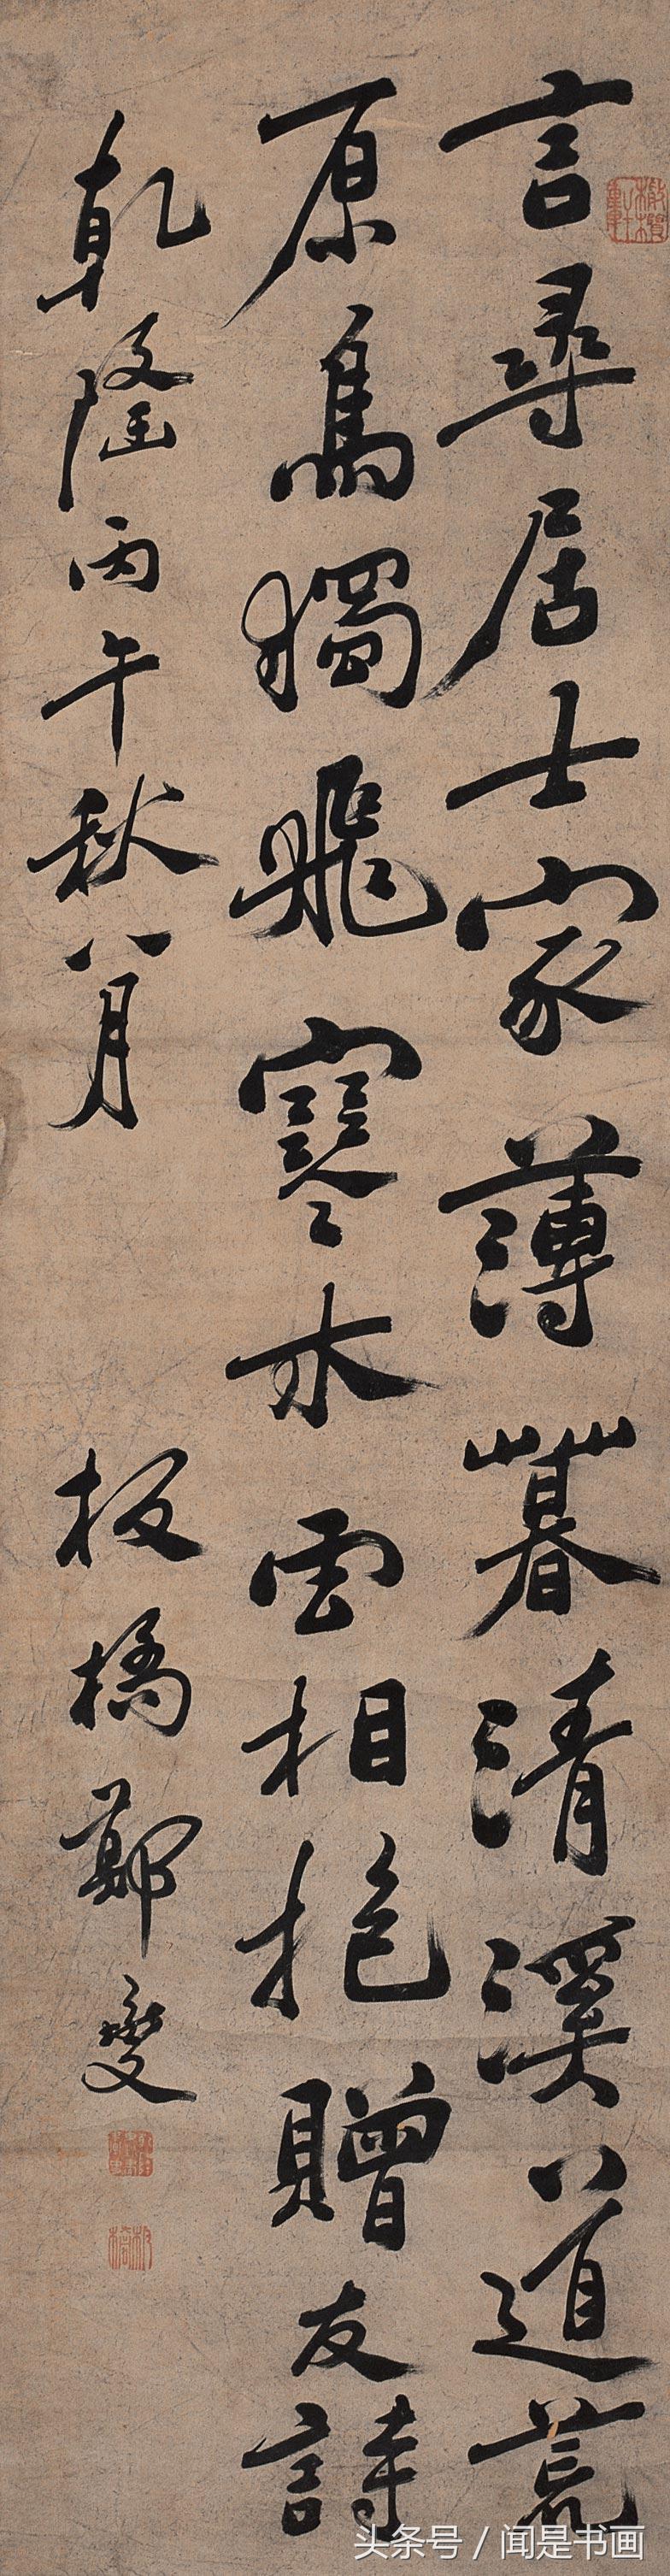 言尋居士家薄暮清溪道荒
原鳥獨飛寒木雲相抱贈友詩
乾隆丙午秋八月 板橋鄭燮
板橋
头条号 / 闻是书画